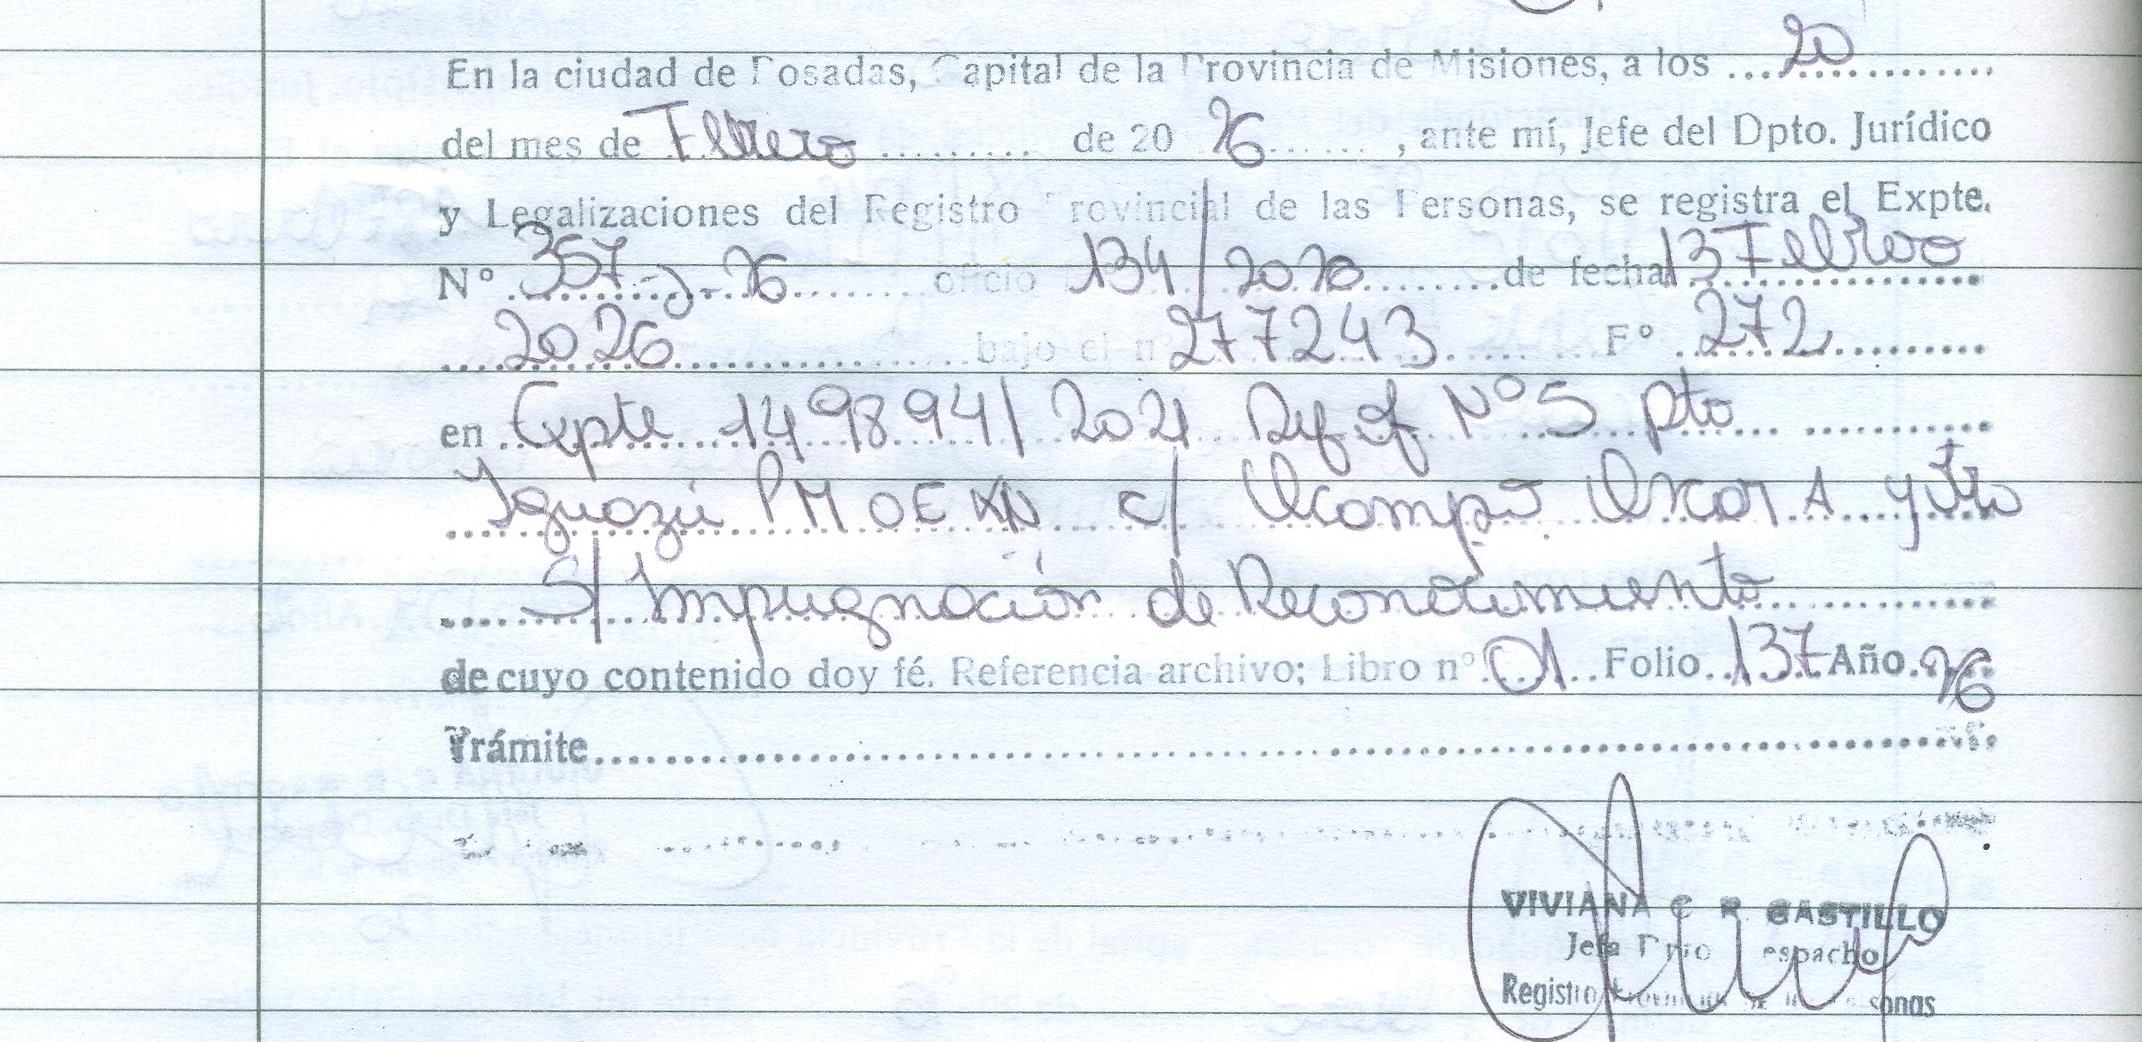 En la ciudad de Posadas, Capital de la Provincia de Misiones, a los ... 20 ............
del mes de Febrero ......... de 20 26 ......, ante mí, Jefe del Dpto. Jurídico
y Legalizaciones del Registro Provincial de las Personas, se registra el Expte.
N° 357-J-26 oficio 134/2026 de fecha 13 Febrero
2026 bajo el n° 277243 F° 272
en Expte 149894/2021 N° 5 Pto
Iguazú c/ Ocampo Oscar A y Otro
S/ Impugnación de Reconocimiento
de cuyo contenido doy fé. Referencia archivo; Libro n° 01 Folio 137 Año 26
Trámite
VIVIANA C R CASTILLO
Jefa Dpto Despacho
Registro Provincial de las Personas